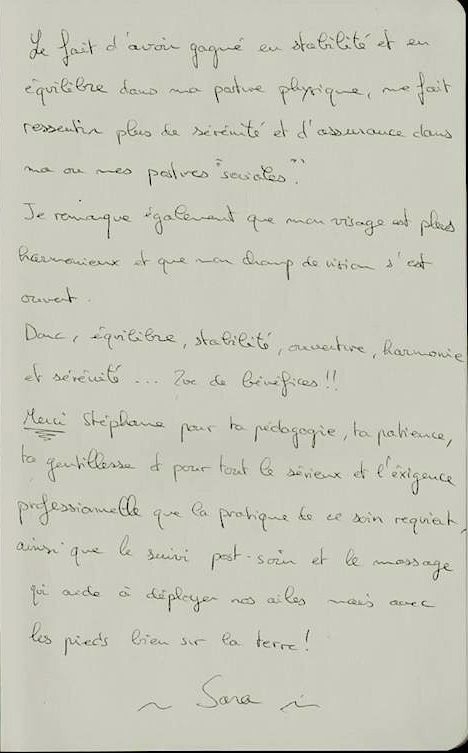 Le fait d'avoir gagné en stabilité et en
équilibre dans ma posture physique, me fait
ressentir plus de sérénité et d'assurance dans
ma ou mes postures "sociales".
Je remarque également que mon visage est plus
harmonieux et que mon champ de vision s'est
ouvert.
Donc, équilibre, stabilité, ouverture, harmonie
et sérénité ... de bénéfices !!
Merci Stéphane pour ta pédagogie, ta patience,
ta gentillesse et pour tout le sérieux et l'éxigence
professionnelle que la pratique de ce soin requiert,
ainsi que le suivi post-soin et le massage
qui aide à déployer nos ailes mais avec
les pieds bien sur la terre !
~ Sara ~